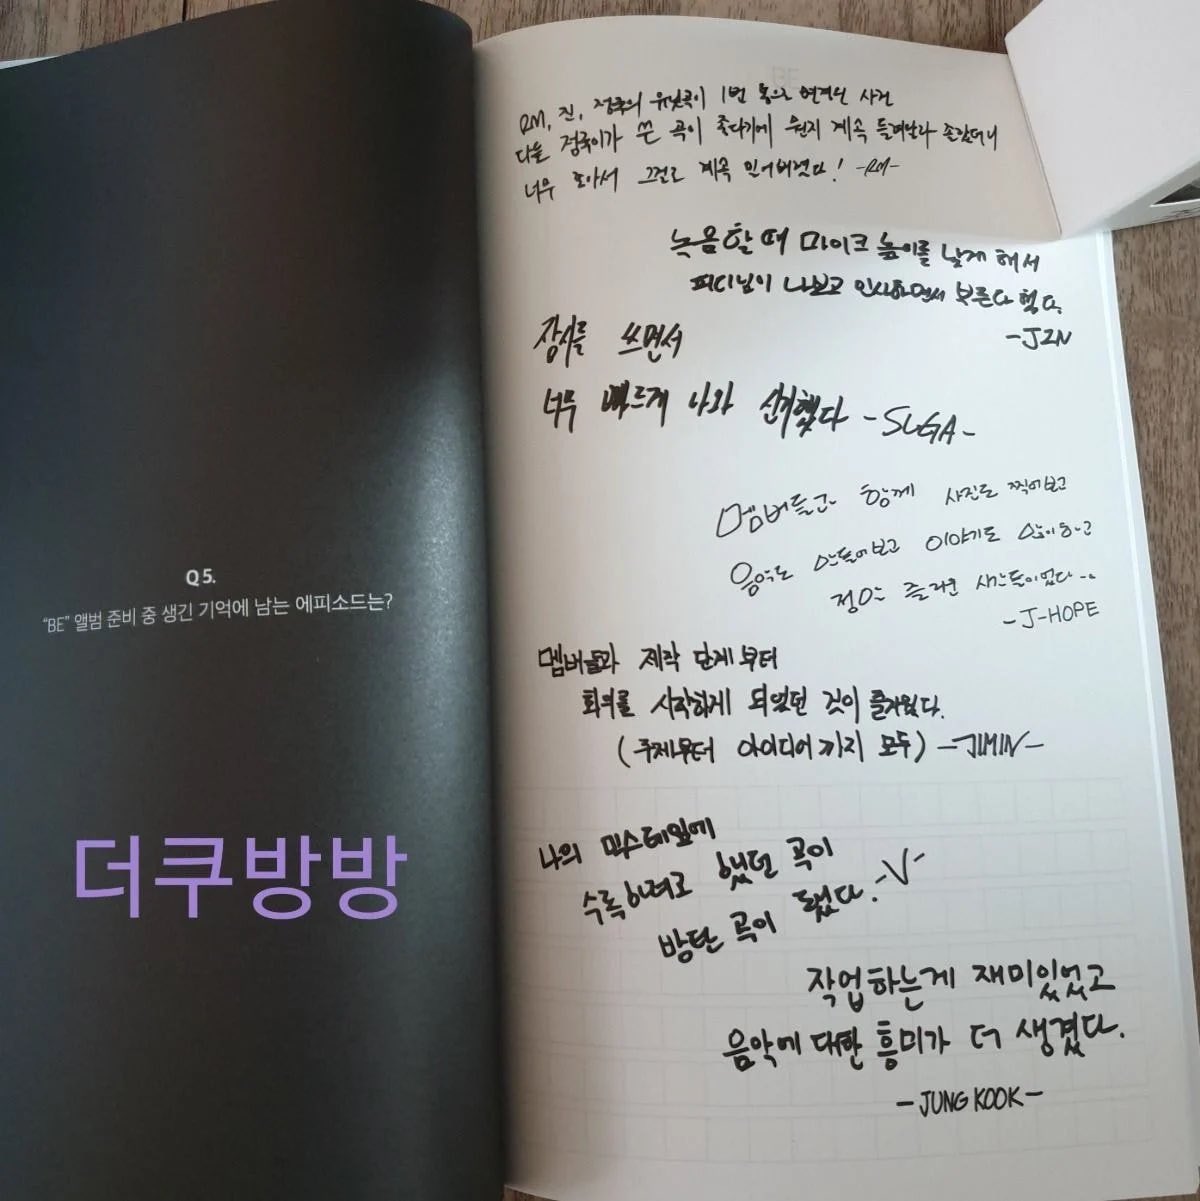 Q 5.
“BE” 앨범 준비 중 생긴 기억에 남는 에피소드는?
더쿠방방
RM, 진, 정국의 유닛곡이 1번 톡으로 연결된 사건
다들 정국이가 쓴 곡이 좋다기에 뭔지 계속 들려달라 졸랐더니
너무 좋아서 그걸로 계속 밀어버렸다! -RM-
녹음할 때 마이크 높이를 낮게 해서
피디님이 나보고 인사하면서 부른다 했다.
-JIN
잠시를 쓰면서
너무 빠르게 나와 신기했다 -SUGA-
멤버들과 함께 사진도 찍어보고
음악도 만들어보고 이야기도 많이하고
정말 즐거운 시간들이었다...
-J-HOPE
멤버들과 제작 단계부터
회의를 시작하게 되었던 것이 즐거웠다.
(주제부터 아이디어까지 모두) -JIMIN-
나의 믹스테잎에
수록하려고 했던 곡이
방탄 곡이 됐다. -V-
작업하는게 재미있었고
음악에 대한 흥미가 더 생겼다.
-JUNG KOOK-